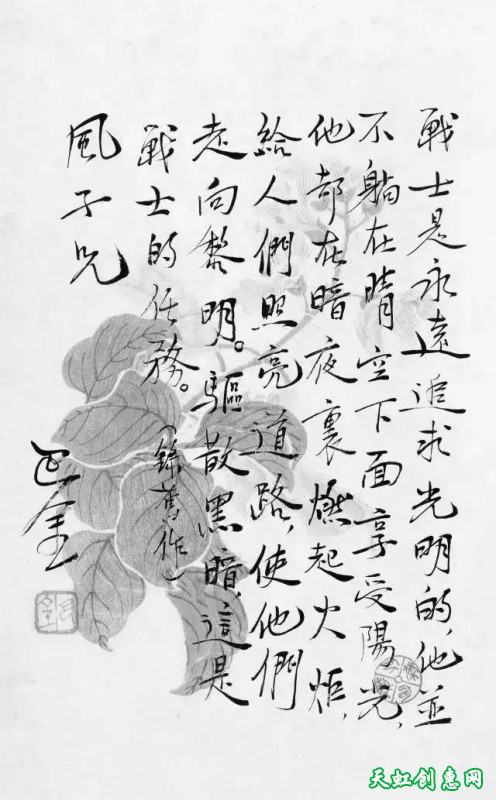 戰士是永遠追求光明的，他並
不躺在晴空下面享受陽光，
他都在暗夜裏燃起火炬，
給人們照亮道路，使他們
走向黎明。驅散黑暗，這是
戰士的任務。
（錄舊作）
風子兄
巴金
天虹创意网